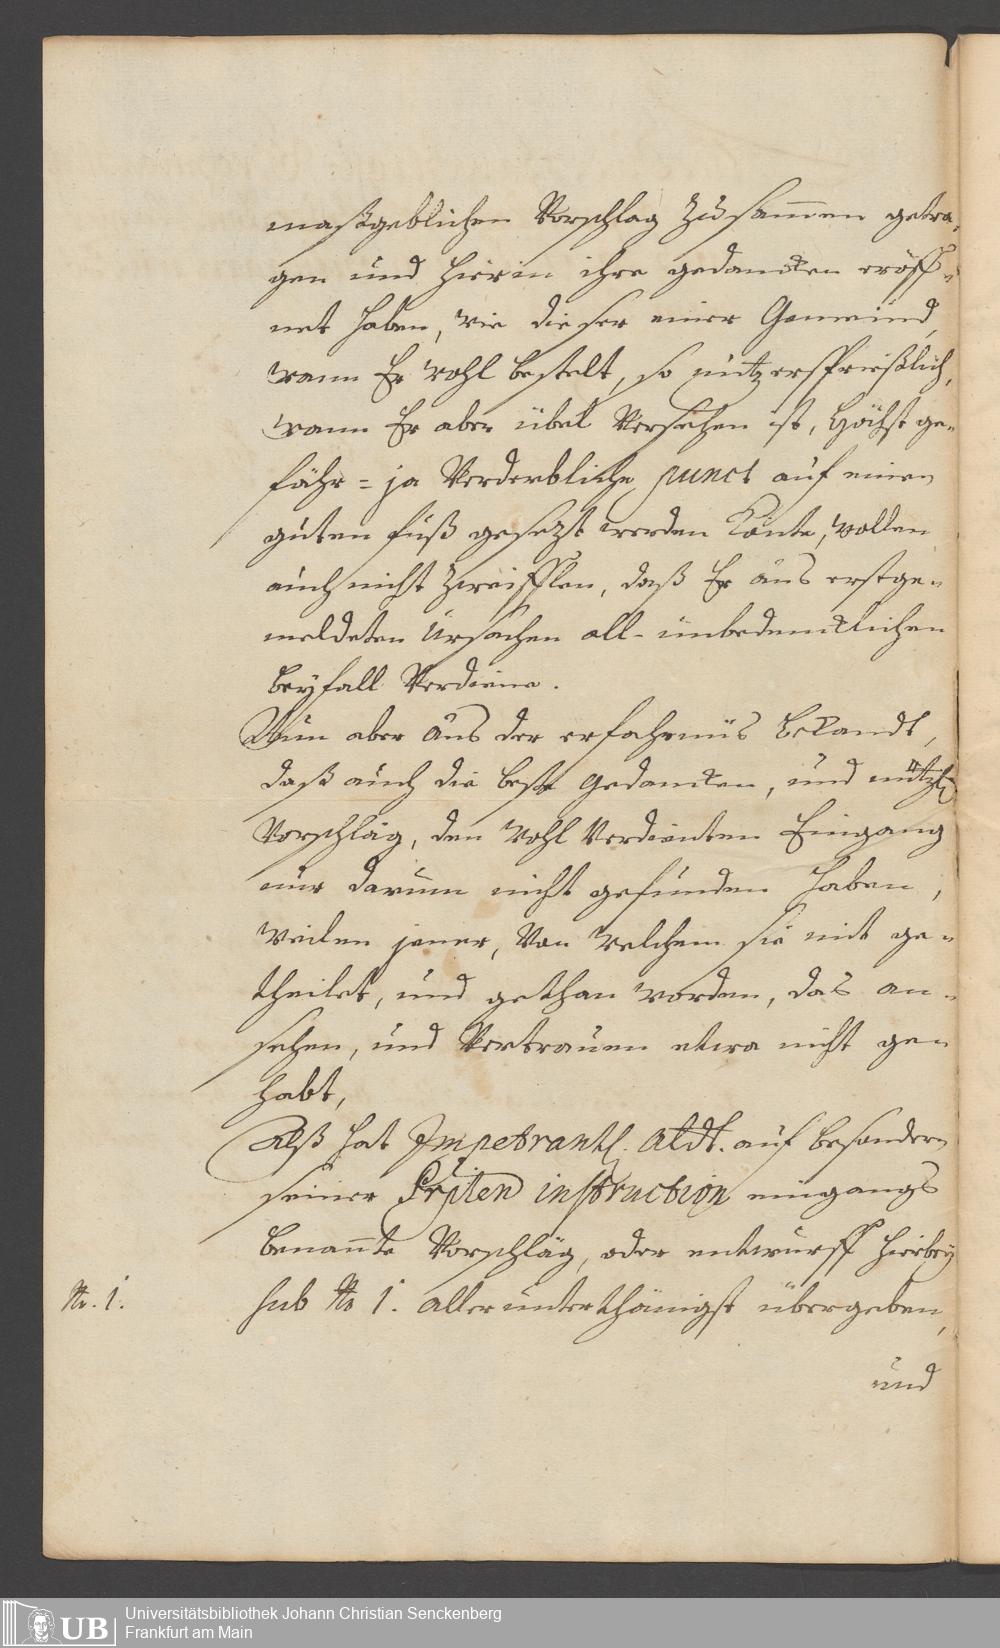 maßgeblichen Vorschlag zusam̄en getra-
gen und hierin ihre gedancken eröff-
net haben, wie dieser einer Gemeind,
wann Er wohl bestelt, so nutz ersprießlich,
wann Er aber übel Versehen ist, höchst ge-
fähr = ja Verderbliche punct auf einen
guten fuß gesezt werden könte, wollen
auch nicht zweifflen, daß Er aus erstge-
meldeten Ursachen all-unbedencklichen
beyfall Verdiene.
Nun aber aus der erfahrnüs bekandt,
daß auch die beste gedancken, und nützl.
Vorschläg, den wohl Verdienten Eingang
nur darum nicht gefunden haben,
weilen jener, Von welchem sie mit ge-
theilet, und gethan worden, das an-
sehen, und Vertrauen etwa nicht ge-
habt,
Alß hat Impetrantl. Aldt. auf besondern
seiner instruction eingangs
benan̄te Vorschläg, oder entwurff hierbey
No. 1. sub No 1. allerunterthänigst übergeben,
und
Universitätsbibliothek Johann Christian Senckenberg
UB Frankfurt am Main